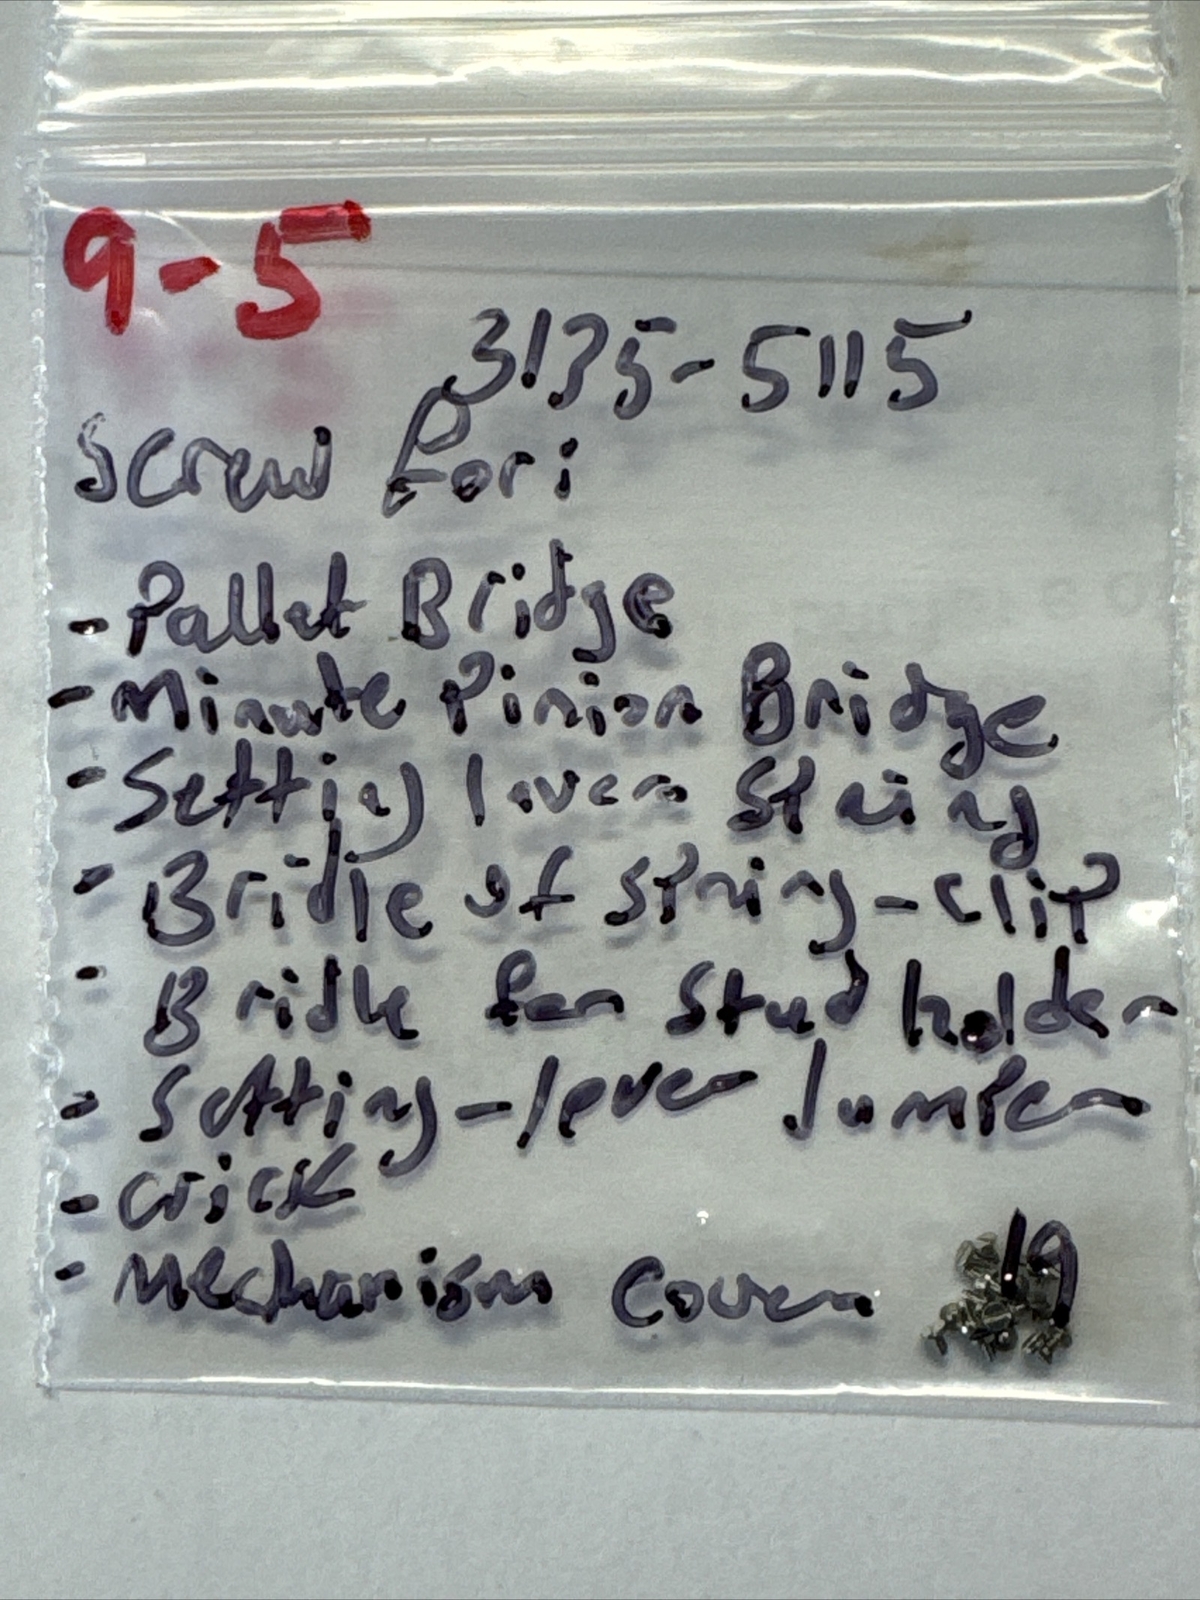 9-5
3135-5115
Screw For:
- Pallet Bridge
- Minute Pinion Bridge
- Setting lever String
- Bridle of spring-clip
- Bridle for Stud holder
- Setting-lever Jumper
- Crick
- Mechanism Cover 19